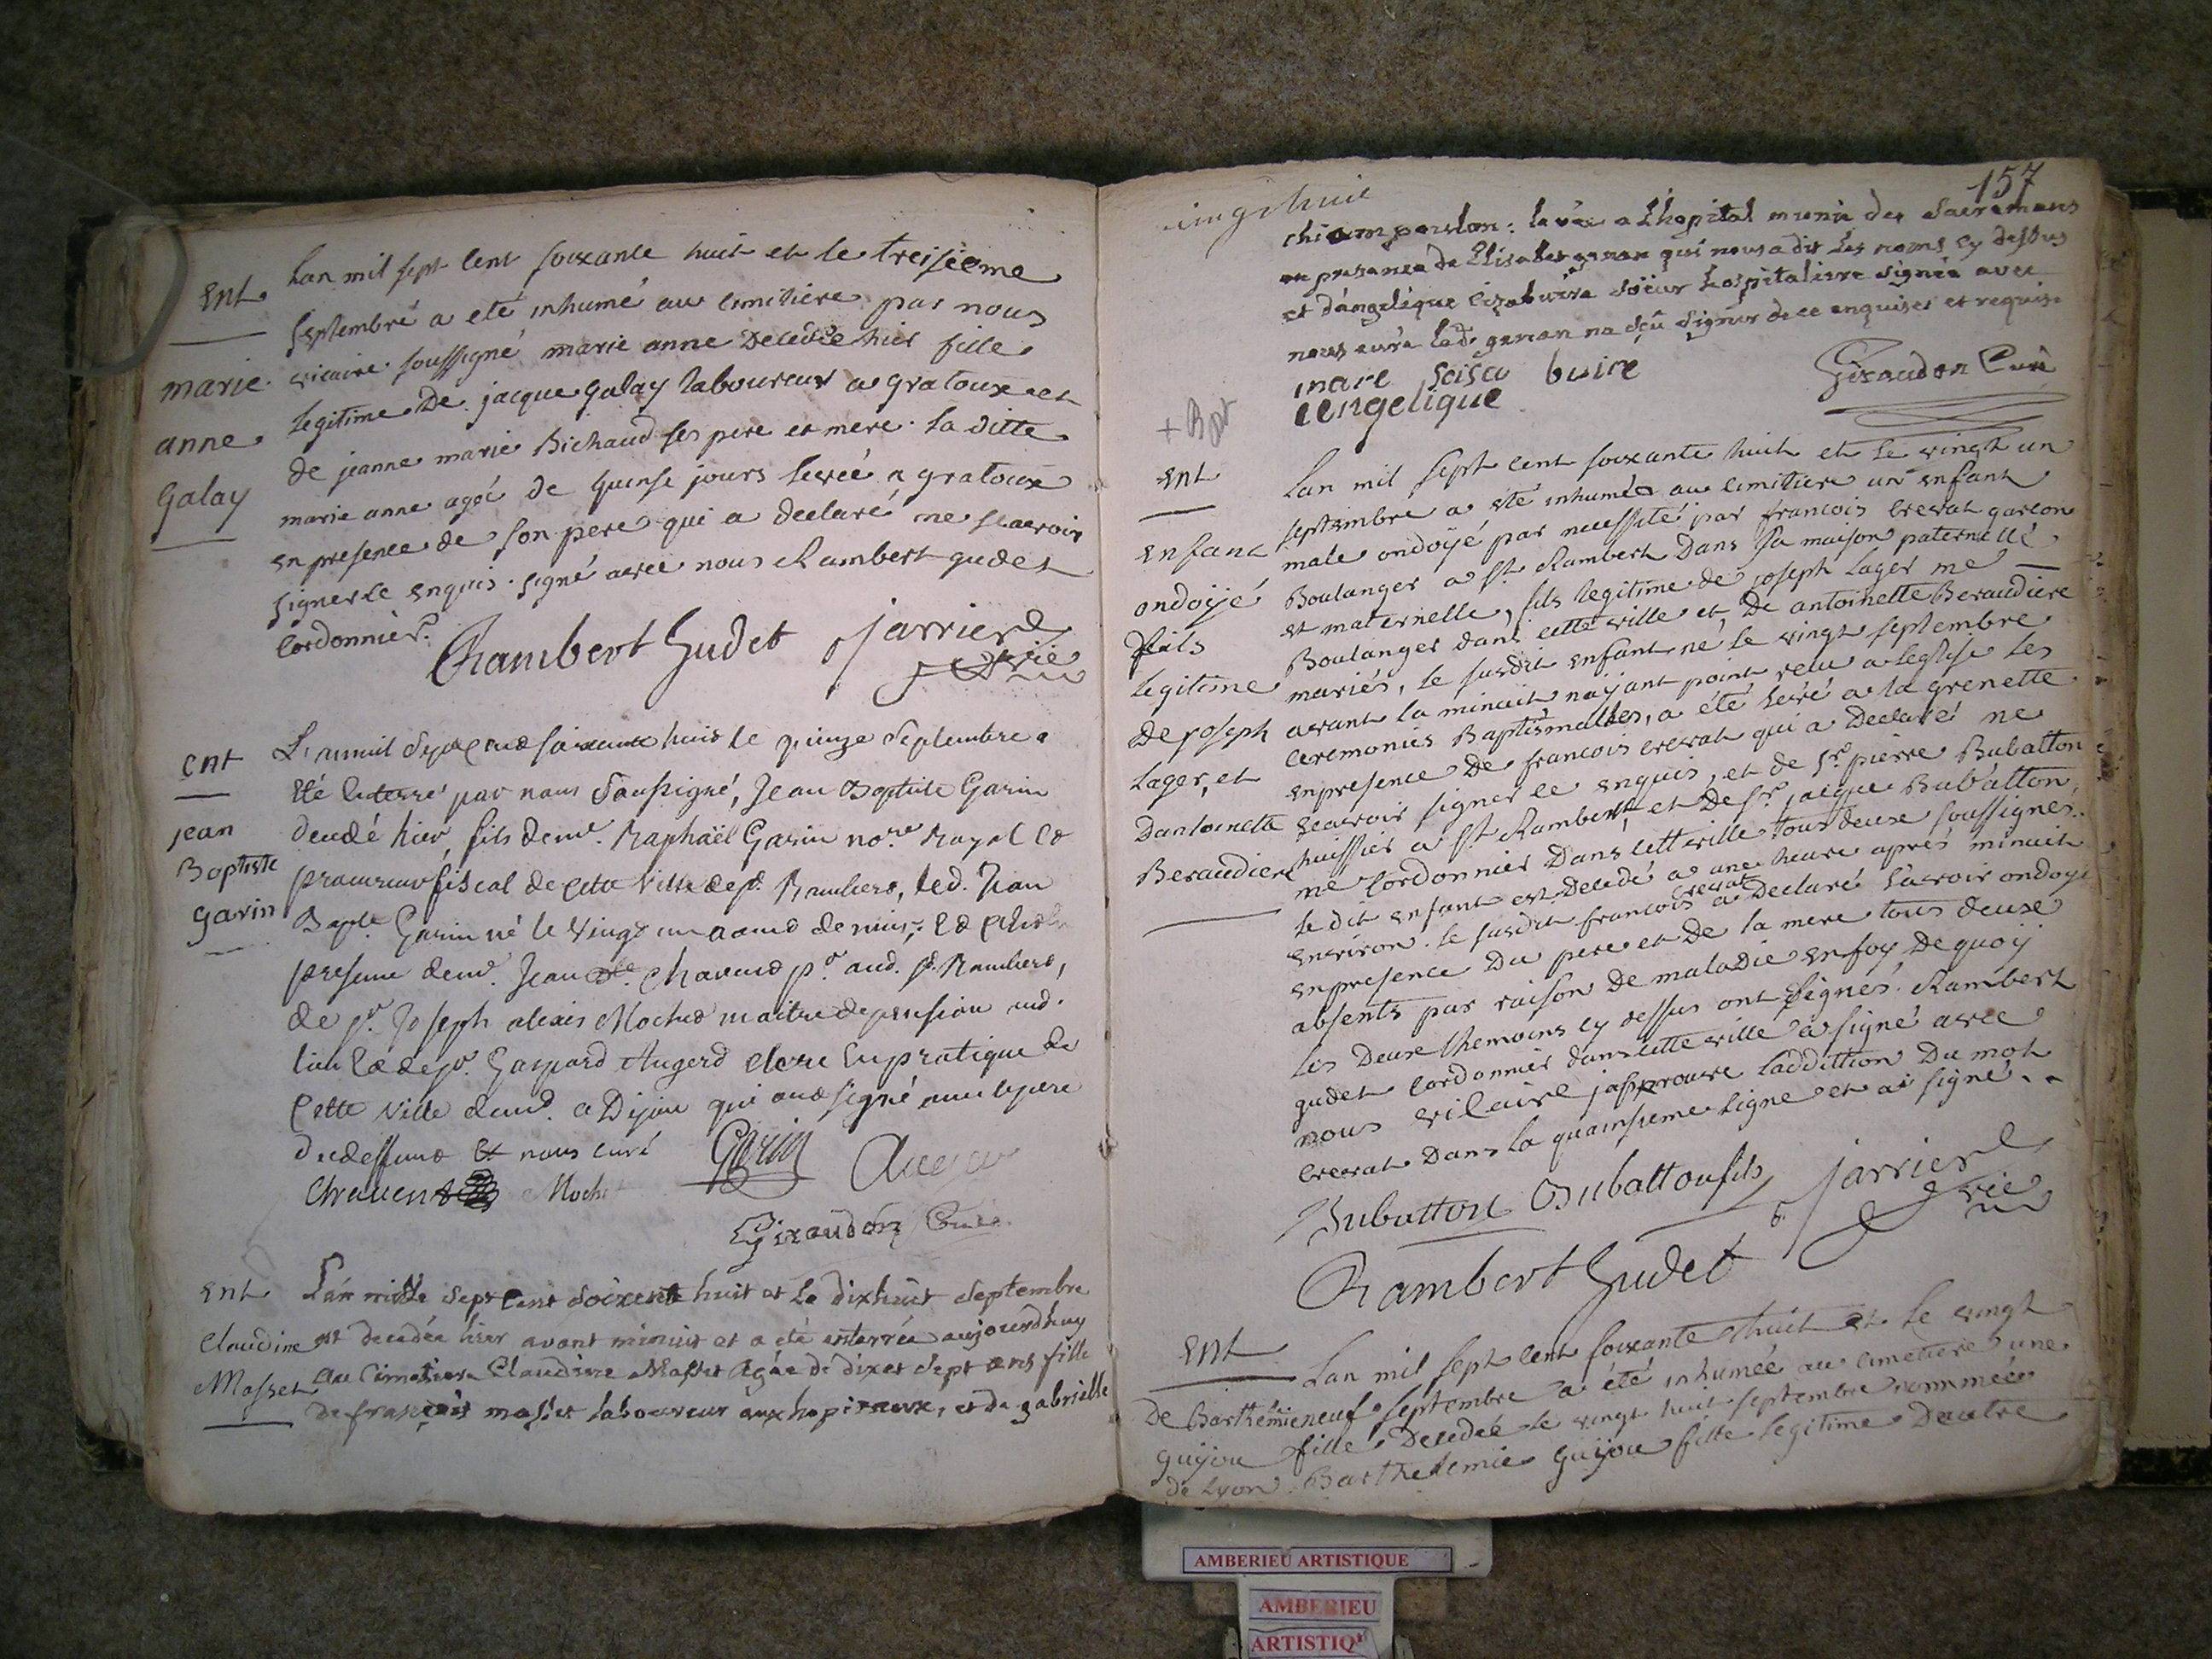 Ent
Lan mil sept cent soixante huit et le treisieme
septembre a eté inhumé au cimitiere par nous
vicaire soussigné marie anne decedée hier fille
legitime de jacque galay laboureur a gratoux et
de jeanne marie Bichaud ses pere et mere. la ditte
marie anne agée de quinse jours levée a gratoux
en presence de son pere qui a declaré ne scavoir
signer ce enquis. signé avec nous Rambert gudet
cordonnier.
marie
anne
galay
Rambert Gudet jarrier
vic
ent
jean
Baptiste
garin
L'an mil sept cent soixante huit le quinze septembre a
été enterré par nous soussigné, Jean Baptiste Garin
decedé hier, fils de mr. Raphaël Garin nore. Royal et
procureur fiscal de cette ville de st. Rambert, led. Jean
Bapte. Garin né le vingt un aoust dernier, et en
presence de mr. Jean chavent pr. aud. st. Rambert,
de sr. Joseph alexis Mochet maitre de pension aud.
lieu et de sr. Gaspard Augerd clerc en pratique de
cette ville demt. a Dijon qui ont signé avec le pere
du deffunt et nous curé
Garin
Auger
Chavent Mochet
Giraudon Curé
Ent
Claudine
Masset
L'an mille sept cent soixent huit et le dixhuit septembre
est decedée hier avant minuit et a été enterrée aujourdhuy
au Cimetiere Claudine Masset agée de dix et sept ans fille
de françois masset laboureur aux hopitaux, et de gabrielle
157
vingt huit
: levée a Lhopital munie des Sacremens
en presance de Elisabet genan qui nous a dit les noms cy dessus
et d'angelique buire soeur hospitaliere signée avec
nous curé lad. genan na sçu signer de ce enquise et requise
mare buire
angelique
Giraudon Curé
+ Bpt
Ent
Enfant
ondoyé
fils
legitime
de joseph
lager, et
dantoinette
Beraudiere
Lan mil sept cent soixante huit et le vingt un
septembre a eté inhumé au cimitiere un enfant
male ondoyé par necessité par francois crevat garcon
Boulanger a st. Rambert dans sa maison paternelle
et maternelle, fils legitime de joseph lager me
Boulanger dans cette ville et de antoinette Beraudiere
mariés, le susdit enfant né le vingt septembre
avant la minuit nayant point recu a leglise les
ceremonies Baptismalles, a été levé a la grenette
en presence de francois crevat qui a declaré ne
scavoir signer ce enquis, et de sr. pierre Bubatton
huissier a st. Rambert, et de sr. jacque Bubatton,
me cordonnier dans cette ville tous deux soussignes.
le dit enfant est decedé a une heure aprés minuit
environ. le susdit francois crevat a declaré l'avoir ondoyé
en presence du pere et de la mere tous deux
absents par raison de maladie en foy de quoy
les deux themoins cy dessus ont signés. Rambert
gudet cordonnier dans cette ville a signé avec
nous vicaire japprouve laddittion du mot
crevat dans la quainsieme ligne et ai signé.
Bubatton Bubatton fils jarrier
vic
Rambert Gudet
Ent
de Barthelemie
guijou
de lyon
Lan mil sept cent soixante huit et le vingt
neuf septembre a été inhumée au cimetiere une
fille decedée le vingt huit septembre nommée
Barthelemie guijou fille legitime dautre
AMBERIEU ARTISTIQUE
AMBERIEU
ARTISTIQ